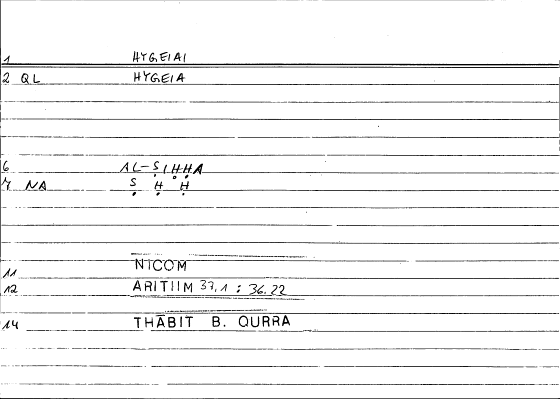 1 HYGEIAI
2 QL HYGEIA
6 AL-ṢIḤḤA
7 NA Ṣ Ḥ Ḥ
11 NICOM
12 ARITIIM 37,1 : 36.22
14 THĀBIT B. QURRA